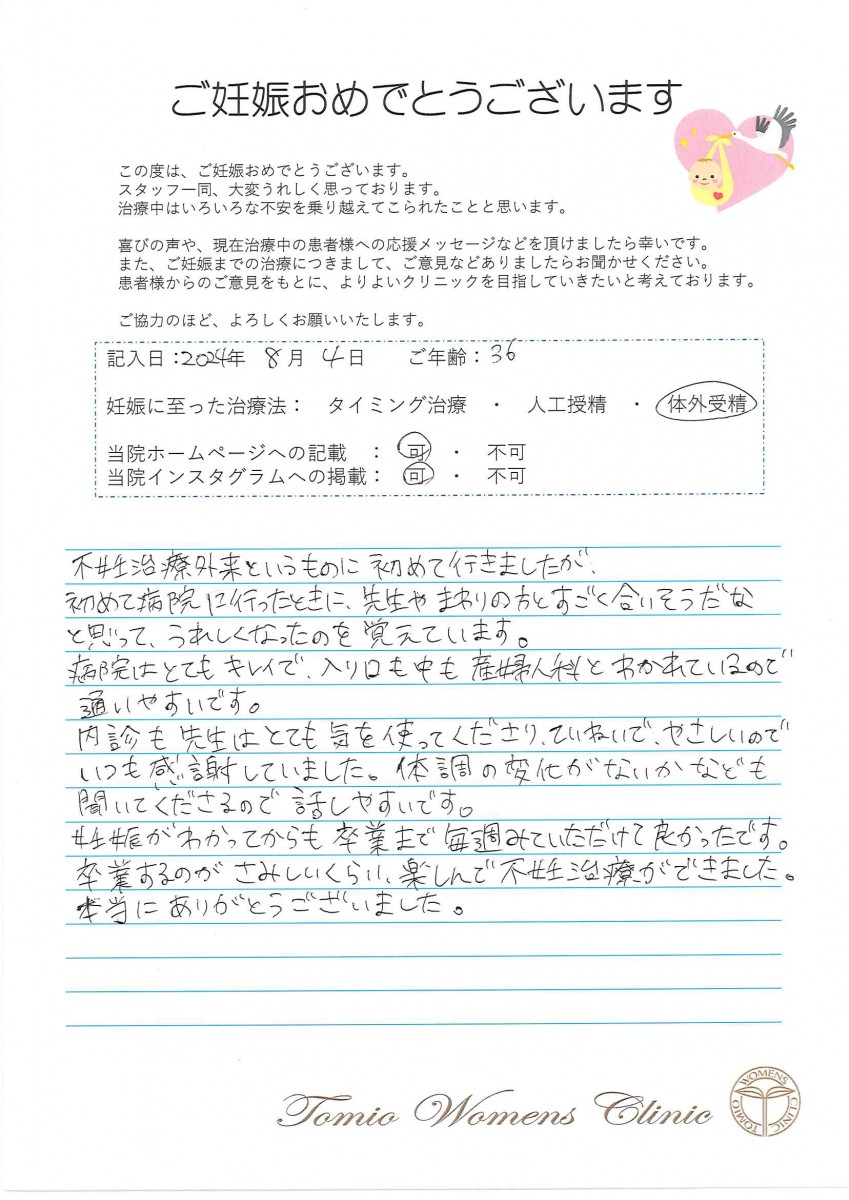 ご妊娠おめでとうございます
この度は、ご妊娠おめでとうございます。
スタッフ一同、大変うれしく思っております。
治療中はいろいろな不安を乗り越えてこられたことと思います。
喜びの声や、現在治療中の患者様への応援メッセージなどを頂けましたら幸いです。
また、ご妊娠までの治療につきまして、ご意見などありましたらお聞かせください。
患者様からのご意見をもとに、よりよいクリニックを目指していきたいと考えております。
ご協力のほど、よろしくお願いいたします。
記入日：2024年 8月 4日 ご年齢：36
妊娠に至った治療法： タイミング治療 ・ 人工授精 ・ 体外受精
当院ホームページへの記載 ： 可 ・ 不可
当院インスタグラムへの掲載： 可 ・ 不可
不妊治療外来というものに初めて行きましたが、
初めて病院に行ったときに、先生やまわりの方とすごく合いそうだな
と思って、うれしくなったのを覚えています。
病院はとてもキレイで、入り口も中も産婦人科とわかれているので
通いやすいです。
内診も先生はとても気を使ってくださり、ていねいで、やさしいので
いつも感謝していました。体調の変化がないかなども
聞いてくださるので話しやすいです。
妊娠がわかってからも卒業まで毎週みていただけて良かったです。
卒業するのがさみしいくらい、楽しんで不妊治療ができました。
本当にありがとうございました。
Tomio Womens Clinic
TOMIO WOMENS CLINIC